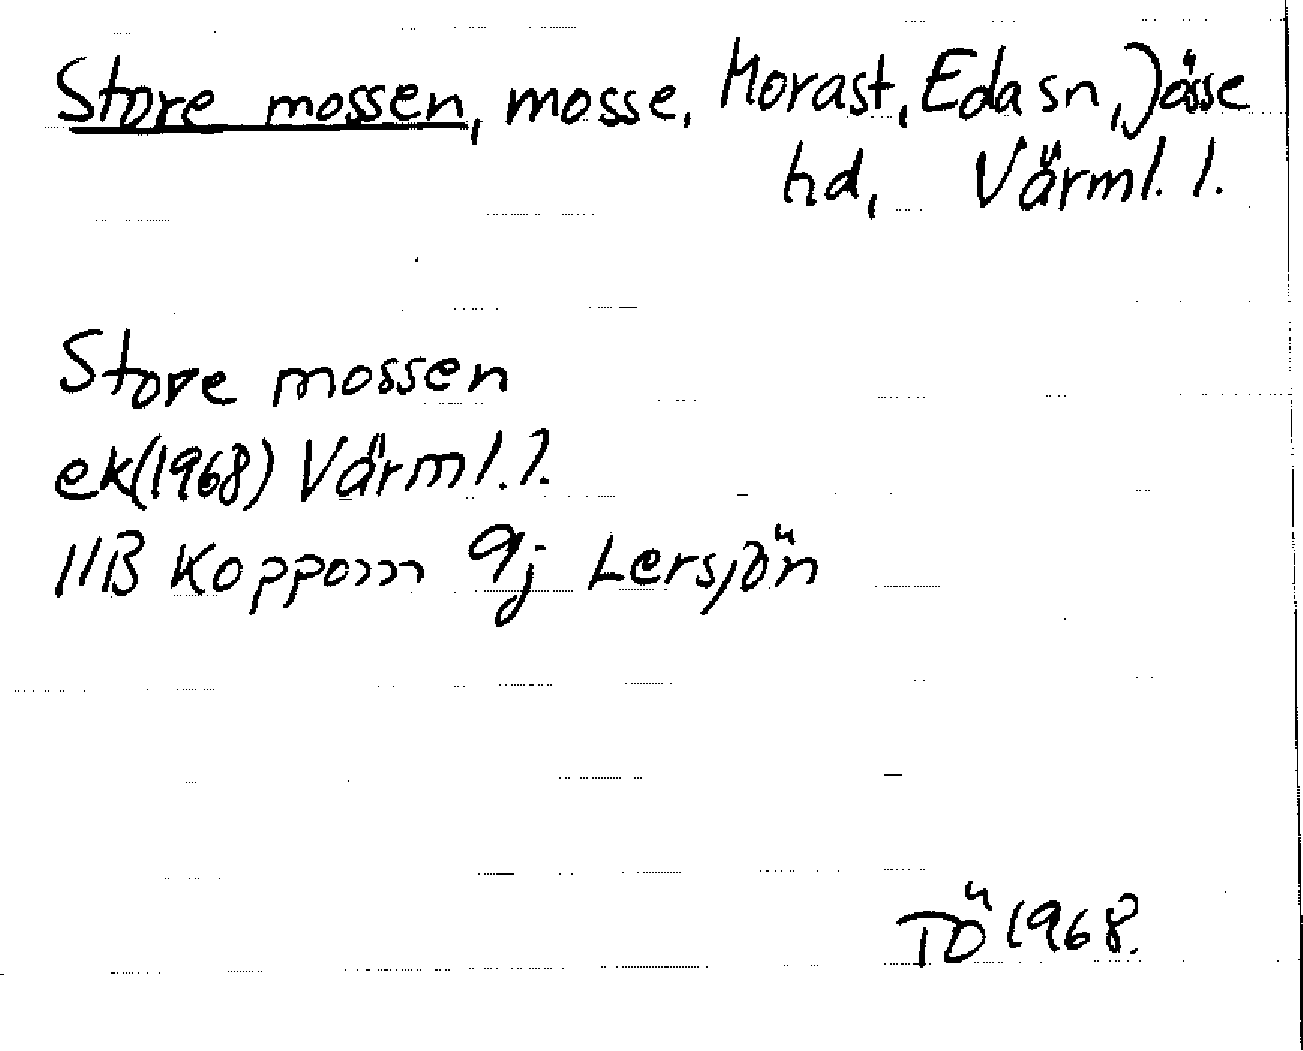 Store mossen, mosse, Morast, Eda sn, Jösse
hd, Värml. l.
Store mossen
ek(1968) Värml. l.
11B Koppom 9j Lersjön
TÖ 1968.